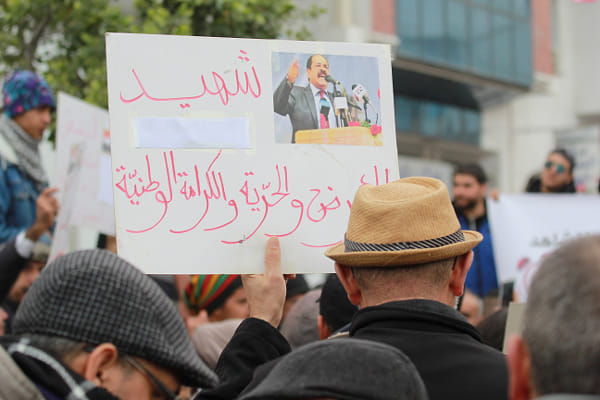 شَهِيد
الأرض والحرّية والكرامة الوطنيّة